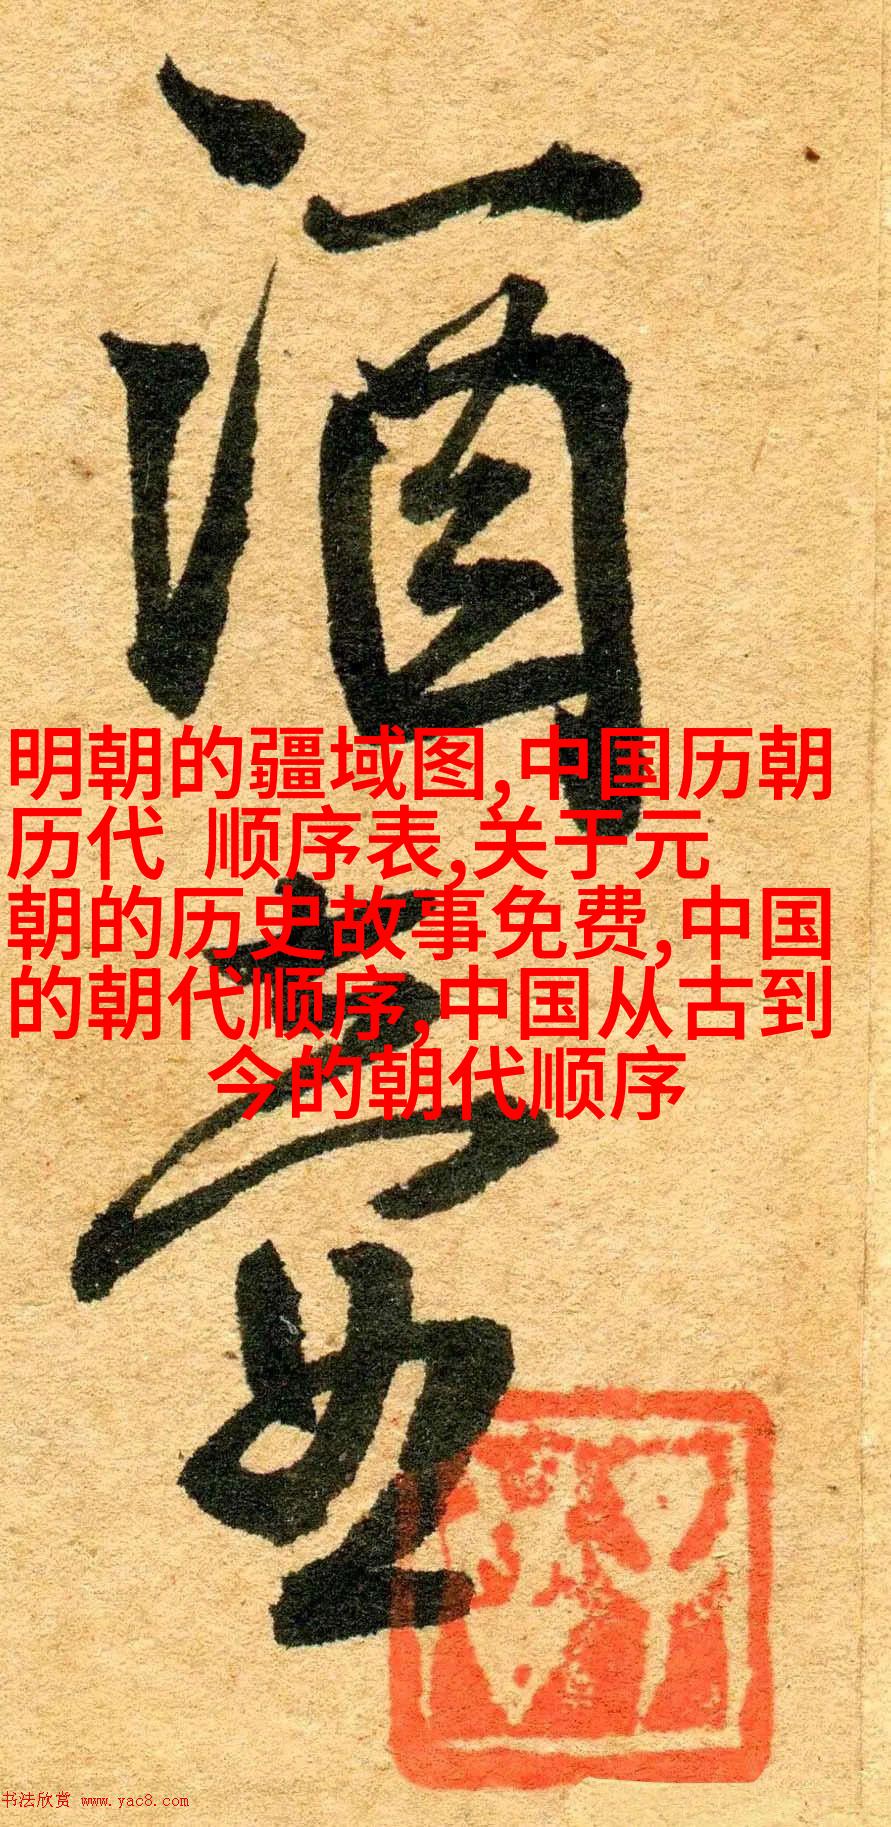 酒
明朝的疆域图,中国历朝
历代 顺序表,关于元
朝的历史故事免费,中国
的朝代顺序,中国从古到
今的朝代顺序
书法欣赏 www.yac8.com